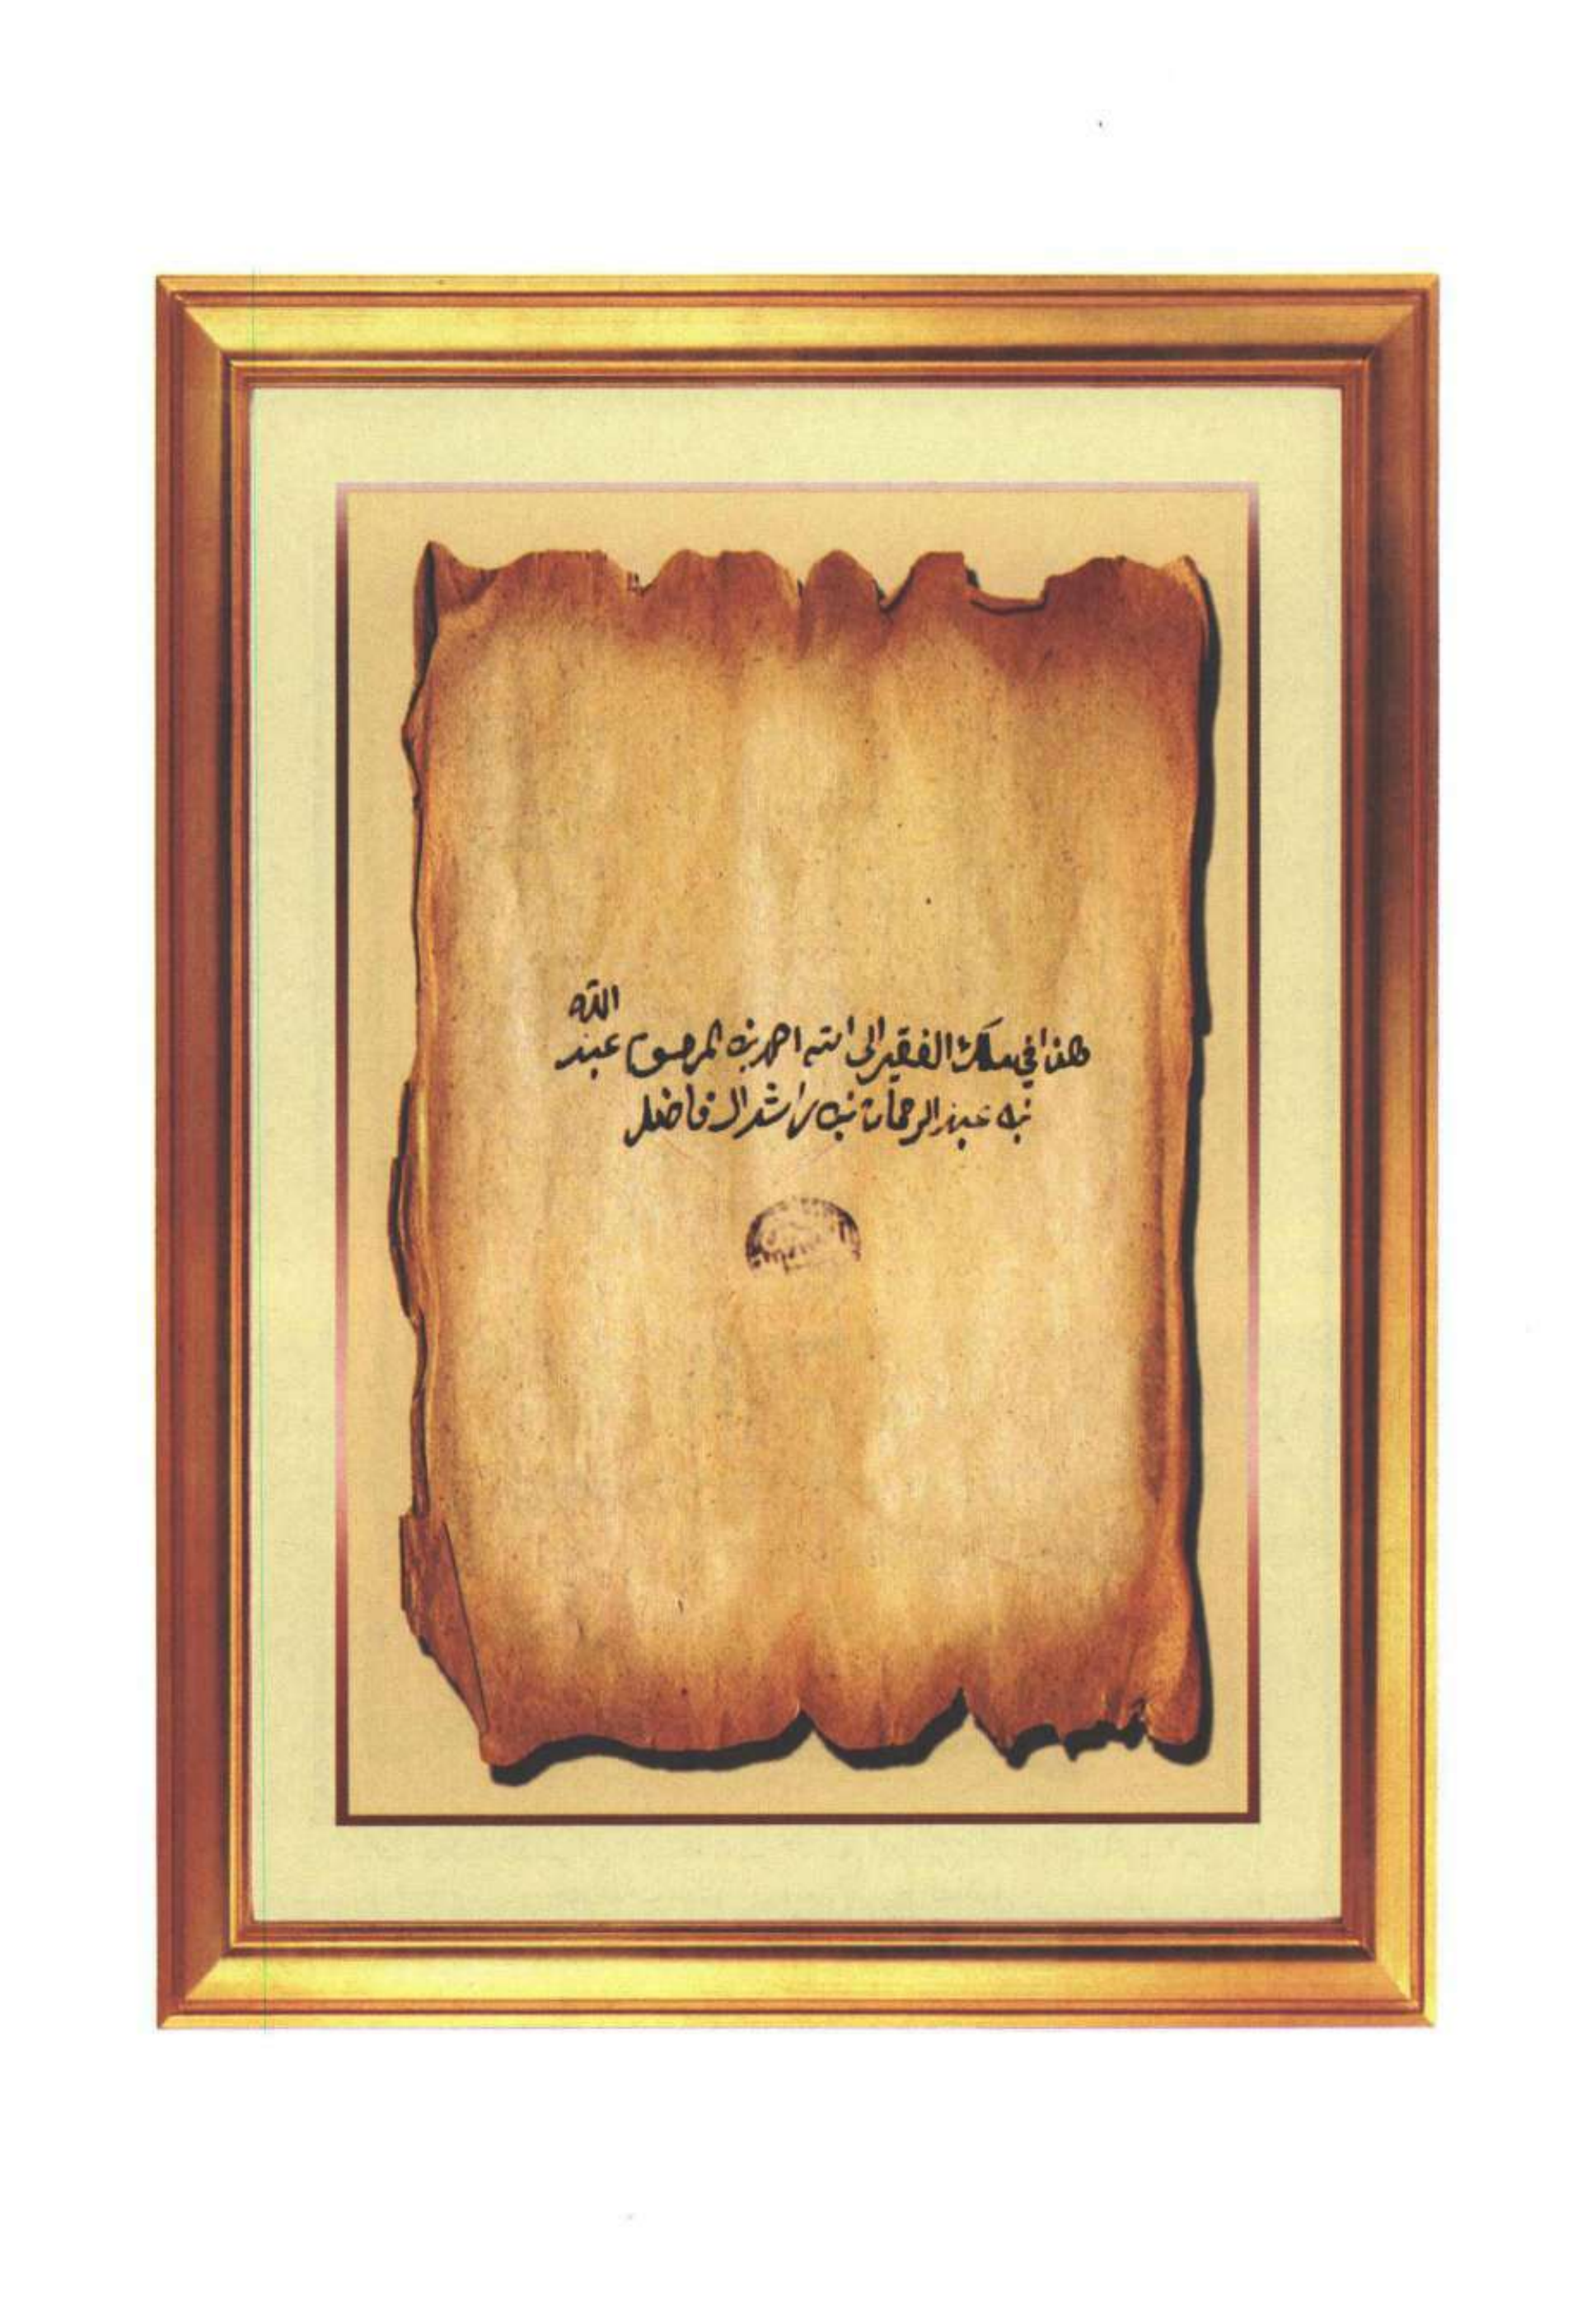 هذا في ملك الفقير إلى الله احمد بن المرحوم عبد الله
بن عبد الرحمان بن راشد ال فاضل